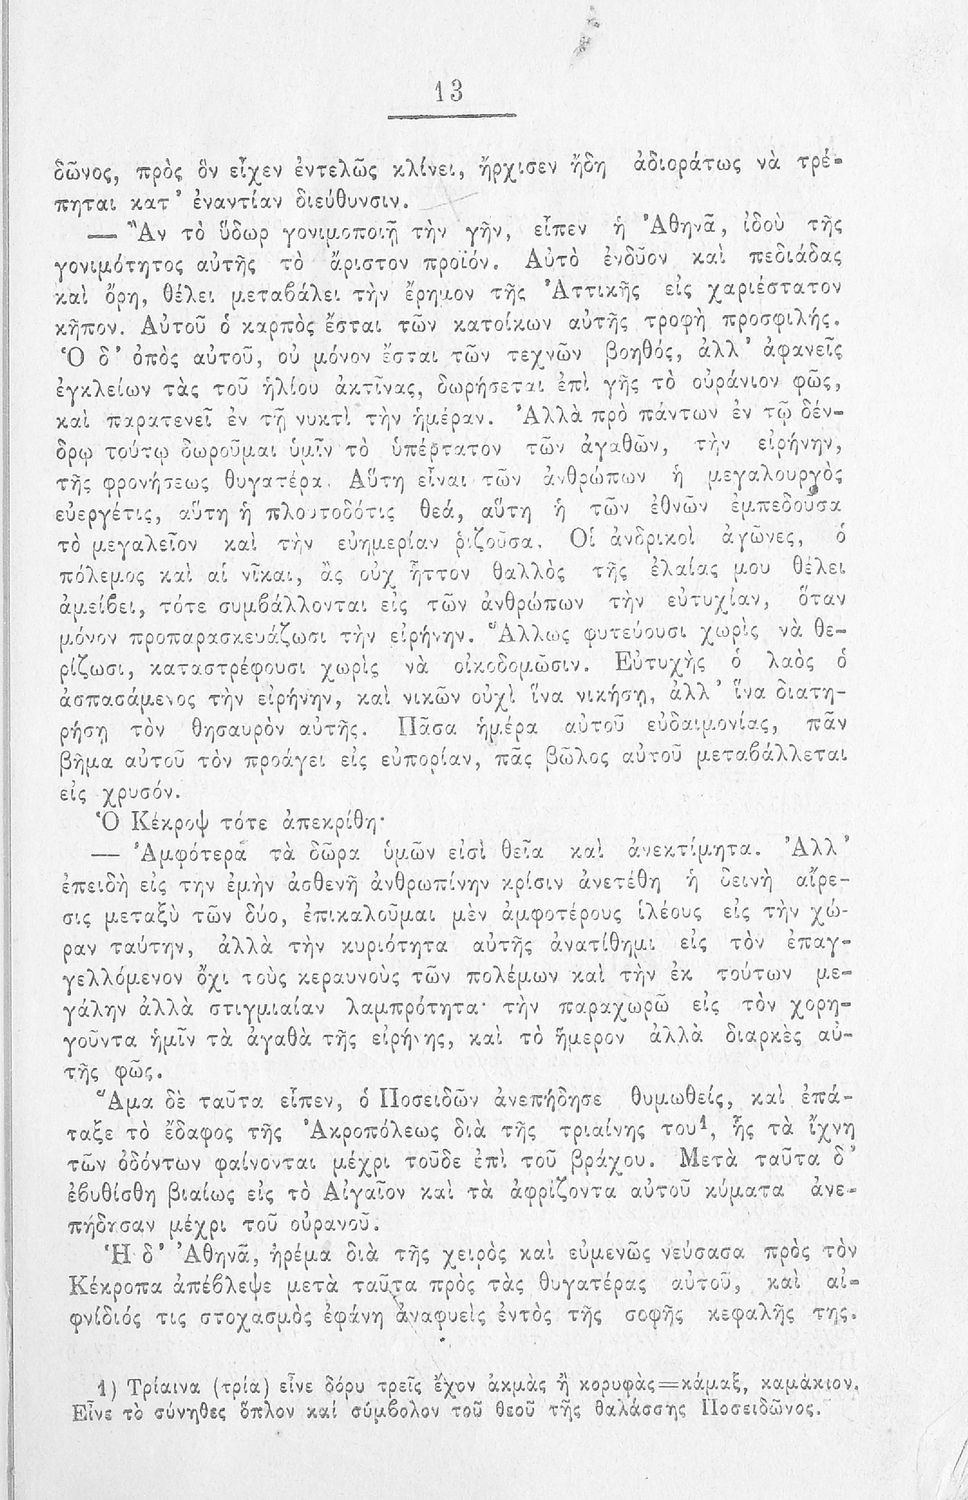 13
δῶνος, πρὸς ὃν εἶχεν ἐντελῶς κλίνει, ἤρχισεν ἤδη ἀδιοράτως νὰ τρέ-
πηται κατ’ ἐναντίαν διεύθυνσιν.
— Ἂν τὸ ὕδωρ γονιμοποιῇ τὴν γῆν, εἶπεν ἡ Ἀθηνᾶ, ἰδοὺ τῆς
γονιμότητος αὐτῆς τὸ ἄριστον προϊόν. Αὐτὸ ἐνδῦον καὶ πεδιάδας
καὶ ὄρη, θέλει μεταβάλει τὴν ἔρημον τῆς Ἀττικῆς εἰς χαριέστατον
κῆπον. Αὐτοῦ ὁ καρπὸς ἔσται τῶν κατοίκων αὐτῆς τροφὴ προσφιλής.
Ὁ δ’ ὀπὸς αὐτοῦ, οὐ μόνον ἔσται τῶν τεχνῶν βοηθός, ἀλλ’ ἀφανεῖς
ἐγκλείων τὰς τοῦ ἡλίου ἀκτῖνας, δωρήσεται ἐπὶ γῆς τὸ οὐράνιον φῶς,
καὶ παρατενεῖ ἐν τῇ νυκτὶ τὴν ἡμέραν. Ἀλλὰ πρὸ πάντων ἐν τῷ δέν-
δρῳ τούτῳ δωροῦμαι ὑμῖν τὸ ὑπέρτατον τῶν ἀγαθῶν, τὴν εἰρήνην,
τῆς φρονήσεως θυγατέρα. Αὕτη εἶναι τῶν ἀνθρώπων ἡ μεγαλουργὸς
εὐεργέτις, αὕτη ἡ πλουτοδότις θεά, αὕτη ἡ τῶν ἐθνῶν ἐμπεδοῦσα
τὸ μεγαλεῖον καὶ τὴν εὐημερίαν ῥιζοῦσα. Οἱ ἀνδρικοὶ ἀγῶνες, ὁ
πόλεμος καὶ αἱ νῖκαι, ἃς οὐχ ἧττον θαλλὸς τῆς ἐλαίας μου θέλει
ἀμείβει, τότε συμβάλλονται εἰς τῶν ἀνθρώπων τὴν εὐτυχίαν, ὅταν
μόνον προπαρασκευάζωσι τὴν εἰρήνην. Ἄλλως φυτεύουσι χωρὶς νὰ θε-
ρίζωσι, καταστρέφουσι χωρὶς νὰ οἰκοδομῶσιν. Εὐτυχὴς ὁ λαὸς ὁ
ἀσπασάμενος τὴν εἰρήνην, καὶ νικῶν οὐχὶ ἵνα νικήσῃ, ἀλλ’ ἵνα διατη-
ρήσῃ τὸν θησαυρὸν αὐτῆς. Πᾶσα ἡμέρα αὐτοῦ εὐδαιμονίας, πᾶν
βῆμα αὐτοῦ τὸν προάγει εἰς εὐπορίαν, πᾶς βῶλος αὐτοῦ μεταβάλλεται
εἰς χρυσόν.
Ὁ Κέκροψ τότε ἀπεκρίθη·
— Ἀμφότερα τὰ δῶρα ὑμῶν εἰσὶ θεῖα καὶ ἀνεκτίμητα. Ἀλλ’
ἐπειδὴ εἰς την ἐμὴν ἀσθενῆ ἀνθρωπίνην κρίσιν ἀνετέθη ἡ δεινὴ αἵρε-
σις μεταξὺ τῶν δύο, ἐπικαλοῦμαι μὲν ἀμφοτέρους ἱλέους εἰς τὴν χώ-
ραν ταύτην, ἀλλὰ τὴν κυριότητα αὐτῆς ἀνατίθημι εἰς τὸν ἐπαγ-
γελλόμενον ὄχι τοὺς κεραυνοὺς τῶν πολέμων καὶ τὴν ἐκ τούτων με-
γάλην ἀλλὰ στιγμιαίαν λαμπρότητα· τὴν παραχωρῶ εἰς τὸν χορη-
γοῦντα ἡμῖν τὰ ἀγαθὰ τῆς εἰρήνης, καὶ τὸ ἥμερον ἀλλὰ διαρκὲς αὐ-
τῆς φῶς.
Ἅμα δὲ ταῦτα εἶπεν, ὁ Ποσειδῶν ἀνεπήδησε θυμωθείς, καὶ ἐπά-
ταξε τὸ ἔδαφος τῆς Ἀκροπόλεως διὰ τῆς τριαίνης του¹, ἧς τὰ ἴχνη
τῶν ὀδόντων φαίνονται μέχρι τοῦδε ἐπὶ τοῦ βράχου. Μετὰ ταῦτα δ’
ἐβυθίσθη βιαίως εἰς τὸ Αἰγαῖον καὶ τὰ ἀφρίζοντα αὐτοῦ κύματα ἀνε-
πήδησαν μέχρι τοῦ οὐρανοῦ.
Ἡ δ’ Ἀθηνᾶ, ἠρέμα διὰ τῆς χειρὸς καὶ εὐμενῶς νεύσασα πρὸς τὸν
Κέκροπα ἀπέβλεψε μετὰ ταῦτα πρὸς τὰς θυγατέρας αὐτοῦ, καὶ αἰ-
φνίδιός τις στοχασμὸς ἐφάνη ἀναφυεὶς ἐντὸς τῆς σοφῆς κεφαλῆς της.
1) Τρίαινα (τρία) εἶνε δόρυ τρεῖς ἔχον ἀκμὰς ἢ κορυφὰς=κάμαξ, καμάκιον.
Εἶνε τὸ σύνηθες ὅπλον καὶ σύμβολον τοῦ θεοῦ τῆς θαλάσσης Ποσειδῶνος.